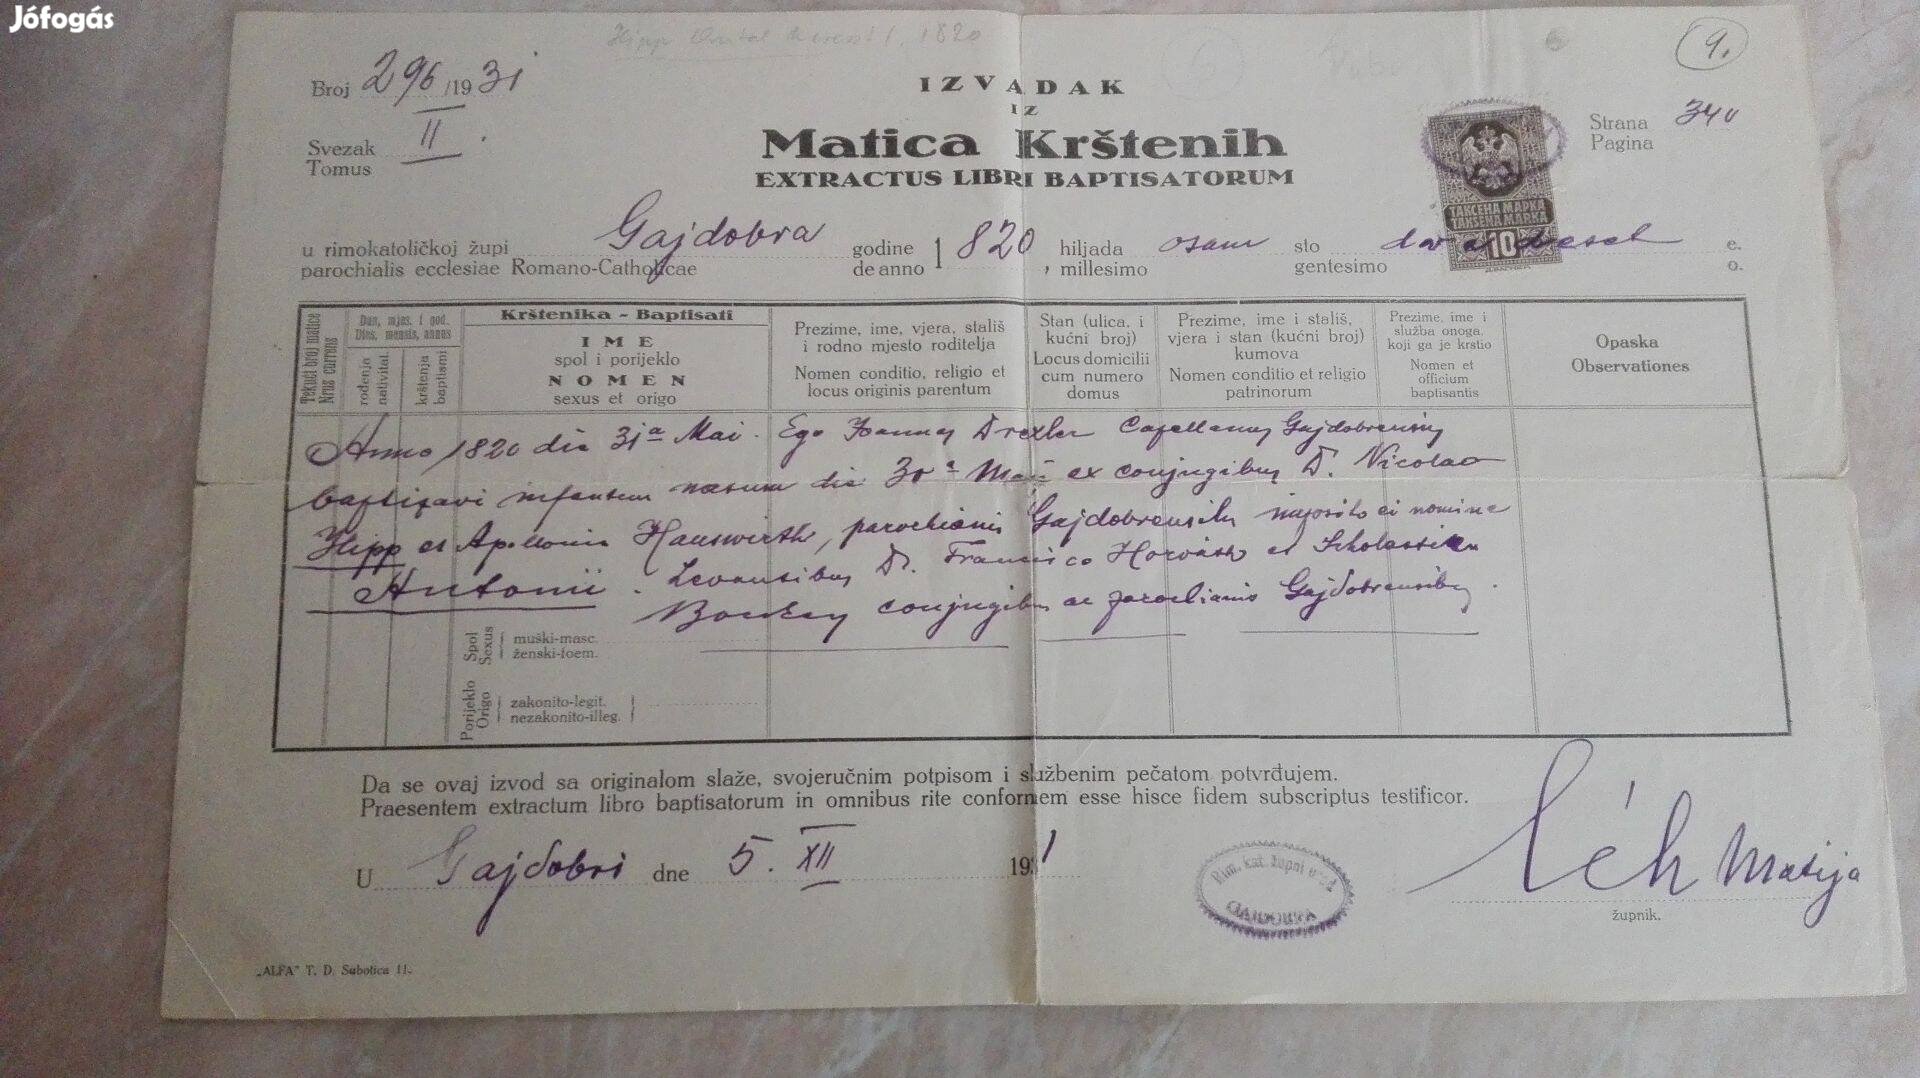 Jófogás
Hipp Antal 1820
9.
Broj 296/1931
Svezak II.
Tomus
IZVADAK
IZ
Matica Krštenih
EXTRACTUS LIBRI BAPTISATORUM
Strana 340
Pagina
ТАКСЕНА МАРКА
TAKSENA MARKA
10
u rimokatoličkoj župi Gajdobra godine 1820 hiljada osam sto dvadeset e.
parochialis ecclesiae Romano-Catholicae de anno , millesimo gentesimo o.
Tekući broj matice
Nrus currens
Dan, mjes. i god.
Dies, mensis, annus
rođenja
nativitat.
krštenja
baptismi
Krštenika - Baptisati
IME
spol i porijeklo
NOMEN
sexus et origo
Prezime, ime, vjera, stališ
i rodno mjesto roditelja
Nomen conditio, religio et
locus originis parentum
Stan (ulica. i
kućni broj)
Locus domicilii
cum numero
domus
Prezime, ime i stališ,
vjera i stan (kućni broj)
kumova
Nomen conditio et religio
patrinorum
Prezime, ime i
služba onoga,
koji ga je krstio
Nomen et
officium
baptisantis
Opaska
Observationes
Anno 1820 die 31a Mai. Ego Joannes Drexler Capellanus Gajdobrensis
baptizavi infantem natum die 30a Maii ex conjugibus D. Nicolao
Hipp et Apollonia Hauswirth, parochianis Gajdobrensibus imposito ei nomine
Antonii. Levantibus D. Francisco Horváth et Scholastica
conjugibus ac parochianis Gajdobrensibus.
Spol
Sexus
muški-masc.
ženski-foem.
Porijeklo
Origo
zakonito-legit.
nezakonito-illeg.
Da se ovaj izvod sa originalom slaže, svojeručnim potpisom i službenim pečatom potvrđujem.
Praesentem extractum libro baptisatorum in omnibus rite conformem esse hisce fidem subscriptus testificor.
U Gajdobri dne 5. XII 1931
Rim. kat. župni ured
GAJDOBRA
Léh Matija
župnik.
„ALFA" T. D. Subotica 11.